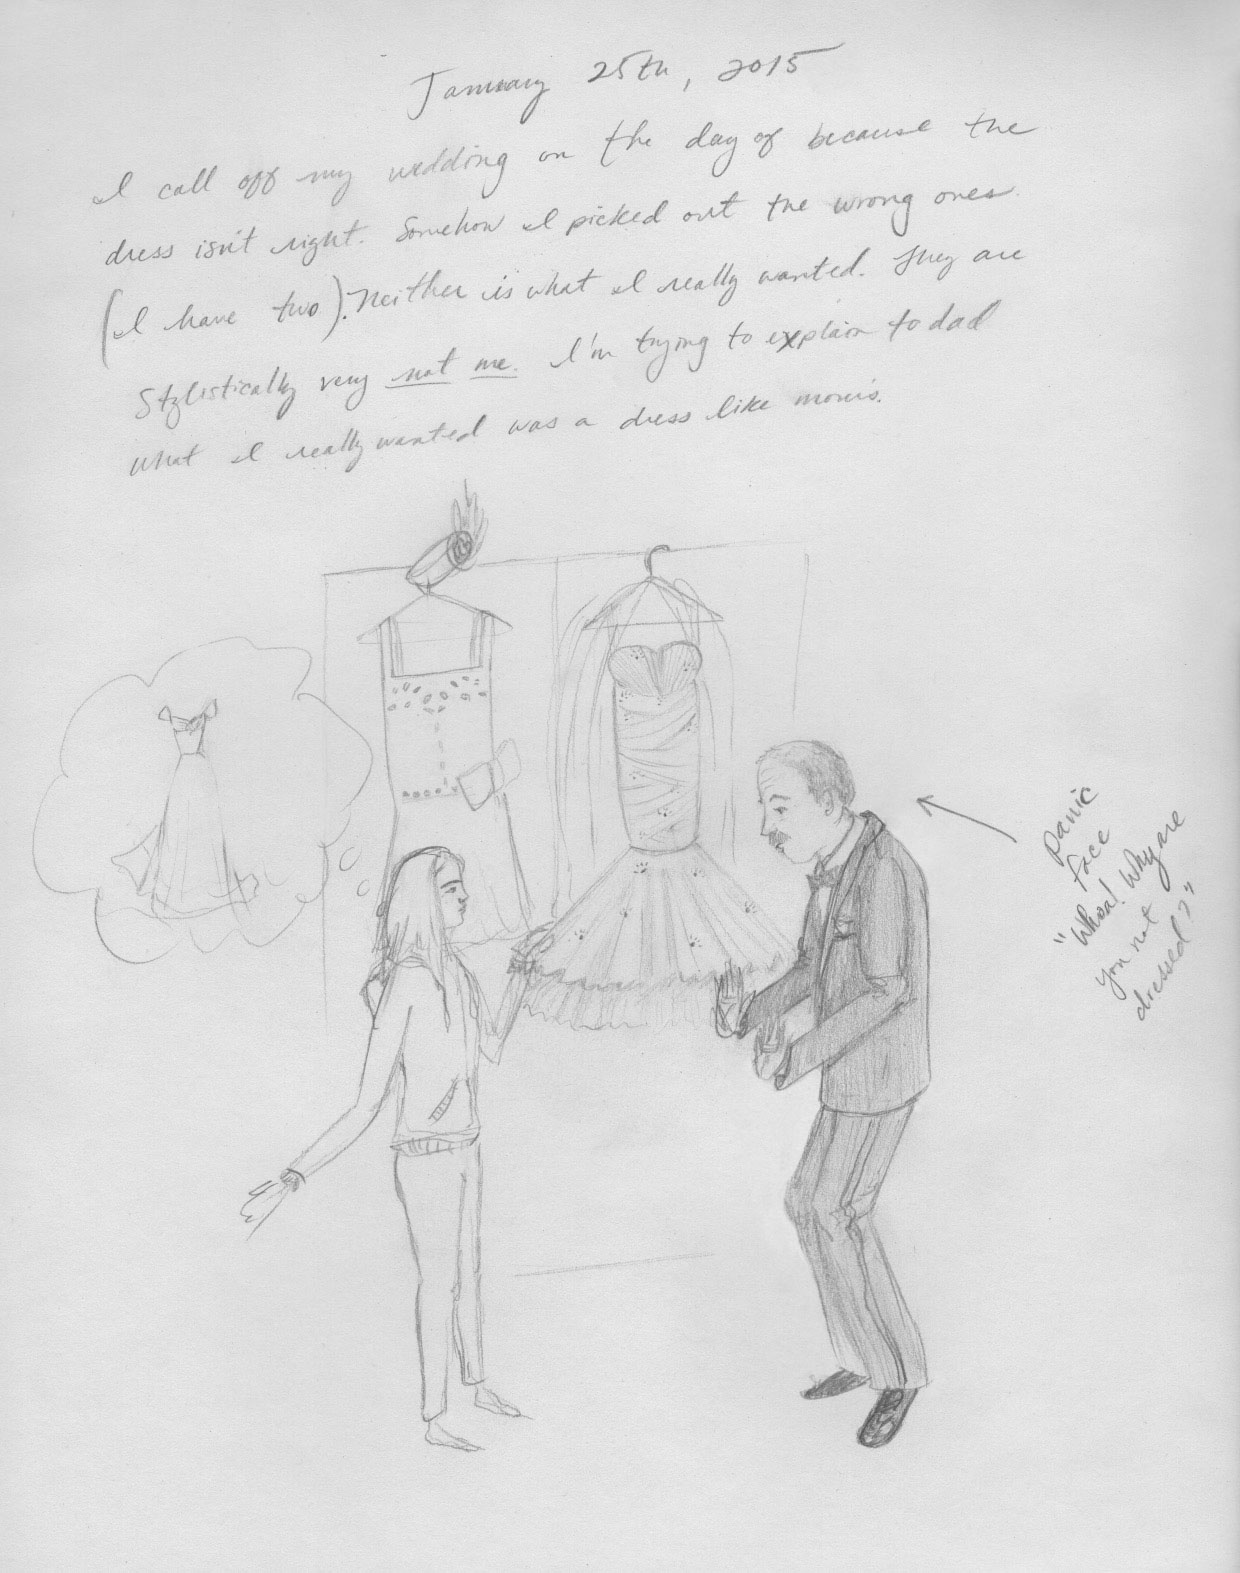 January 25th, 2015
I call off my wedding on the day of because the
dress isn't right. Somehow I picked out the wrong ones.
(I have two). Neither is what I really wanted. They are
Stylistically very not me. I'm trying to explain to dad
what I really wanted was a dress like mom's.
panic
face
"Whoa! Why are
you not
dressed?"